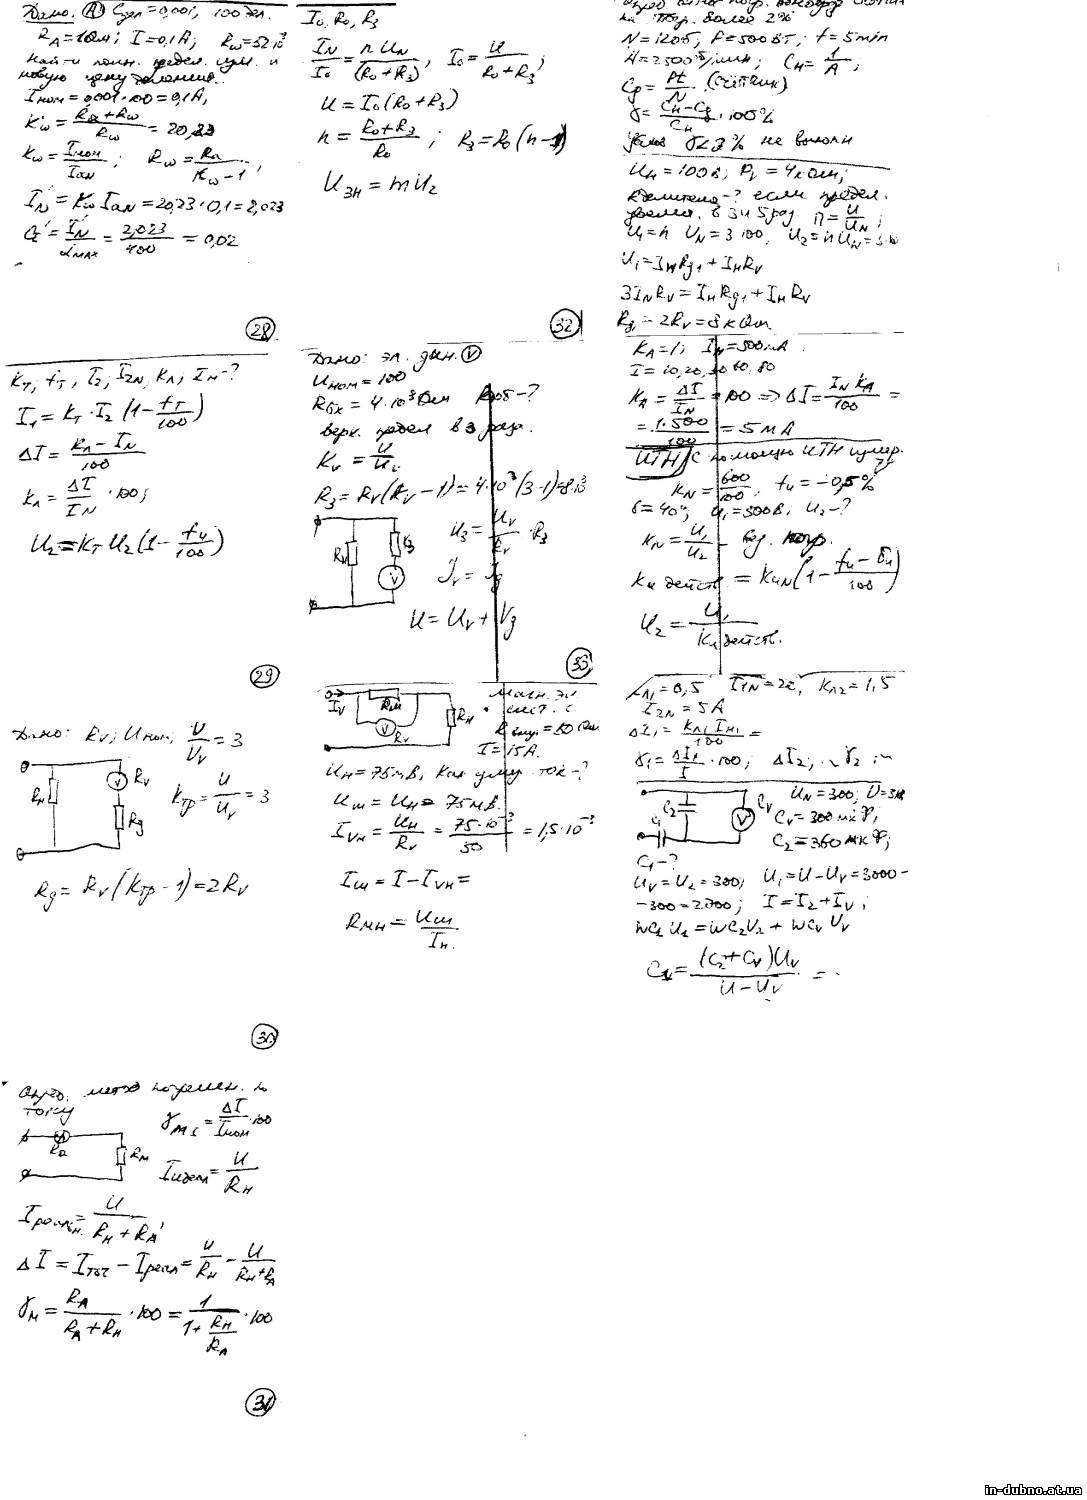 Дано: (A) Cдел = 0,001, 100 дел.
RA = 1 Ом; I = 0,1 A; Rш = 52·10⁻³
найти предел. изм. и
новую цену деления.
Iном = 0,001·100 = 0,1 A,
Kш = (Ra + Rш)/Rш = 20,23
Kш = Iном/Iан; Rш = Ra/(Kш − 1),
I'N = Kш IаN = 20,23·0,1 = 2,023
C'I = I'N/αмах = 2,023/400 = 0,02
28
KT, fT, I2, I2N, KA, IН -?
I1 = KT·I2 (1 − fT/100)
ΔI = (KA − IN)/100
KA = ΔI/IN · 100;
U2 = KT U2 (1 − fи/100)
29
Дано: RV; Uном, U/UV = 3
RН
V
RV
Rg
Kтр = U/UV = 3
Rg = RV (Kтр − 1) = 2RV
30
по
току
RA
RН
γМI = ΔI/Iном · 100
Iидеал = U/RН
Iреальн. = U/(RН + RA)
ΔI = Iтот − Iреал = U/RН − U/(RН + RA)
γМ = RA/(RA + RН) · 100 = 1/(1 + RН/RA) · 100
31
I0, R0, R3
IN/I0 = n UN/(R0 + R3), I0 = U/(R0 + R3);
U = I0(R0 + R3)
n = (R0 + R3)/R0; R3 = R0 (n − 1)
U3Н = m U2
32
Дано: эл. дин. (V)
Uном = 100
Rвх = 4·10³ Ом Rдоб -?
верх. предел в 3 раза.
KV = U/UV
R3 = RV(KV − 1) = 4·10³(3 − 1) = 8·10³
RV
R3
V
U3 = UV/RV · R3
IV = Ig
U = UV + Vg
33
IV
RМ
V
RV
RН
Магн. эл
сист. с
Rвнутр = 50 Ом
I = 15 A.
UН = 75 мВ, ток -?
Uш = UН = 75 мВ.
IVН = UН/RV = 75·10⁻³/50 = 1,5·10⁻³
Iш = I − IVН =
RМН = Uш/IН.
более 2%
N = 120 об, P = 500 Вт; t = 5 min
A = 2500 об/мин; CН = 1/A;
Cg = Pt/N (счётчик)
γ = (CН − Cg)/CН · 100%
не
UН = 100 В; RV = 4 кОм;
-? если предел.
в 3 и 5 раз. n = U/UN;
U1 = n UN = 3·100, U2 = n UN =
U1 = IН Rg1 + IН RV
3IN RV = IН Rg1 + IН RV
Rg1 = 2RV = 8 кОм.
KA = 1; IN = 500 мА
I = 10, 20, 40, 60, 80
KA = ΔI/IN · 100 => ΔI = IN KA/100 =
= 1·500/100 = 5 мА
ИТН с помощью ИТН измер.
KN = 600/100, fи = −0,5%
δ = 40'; U1 = 500 В; U2 -?
KN = U1/U2
Kи действ = KиN (1 − (fи − δи)/100)
U2 = U1/Kи действ.
KA1 = 0,5 I1N = 2a, KA2 = 1,5
I2N = 5 A
ΔI1 = KA1 IН1/100 =
γ1 = ΔI1/I · 100; ΔI2, γ2
C1
C2
V
CV
UN = 300; U = 3к
CV = 300 мкФ,
C2 = 360 мкФ;
C1 -?
UV = U2 = 300; U1 = U − UV = 3000 −
− 300 = 2700; I = I2 + IV;
WC1 U1 = WC2V2 + WCV UV
C1 = (C2 + CV) UV/(U − UV) =
in-dubno.at.ua